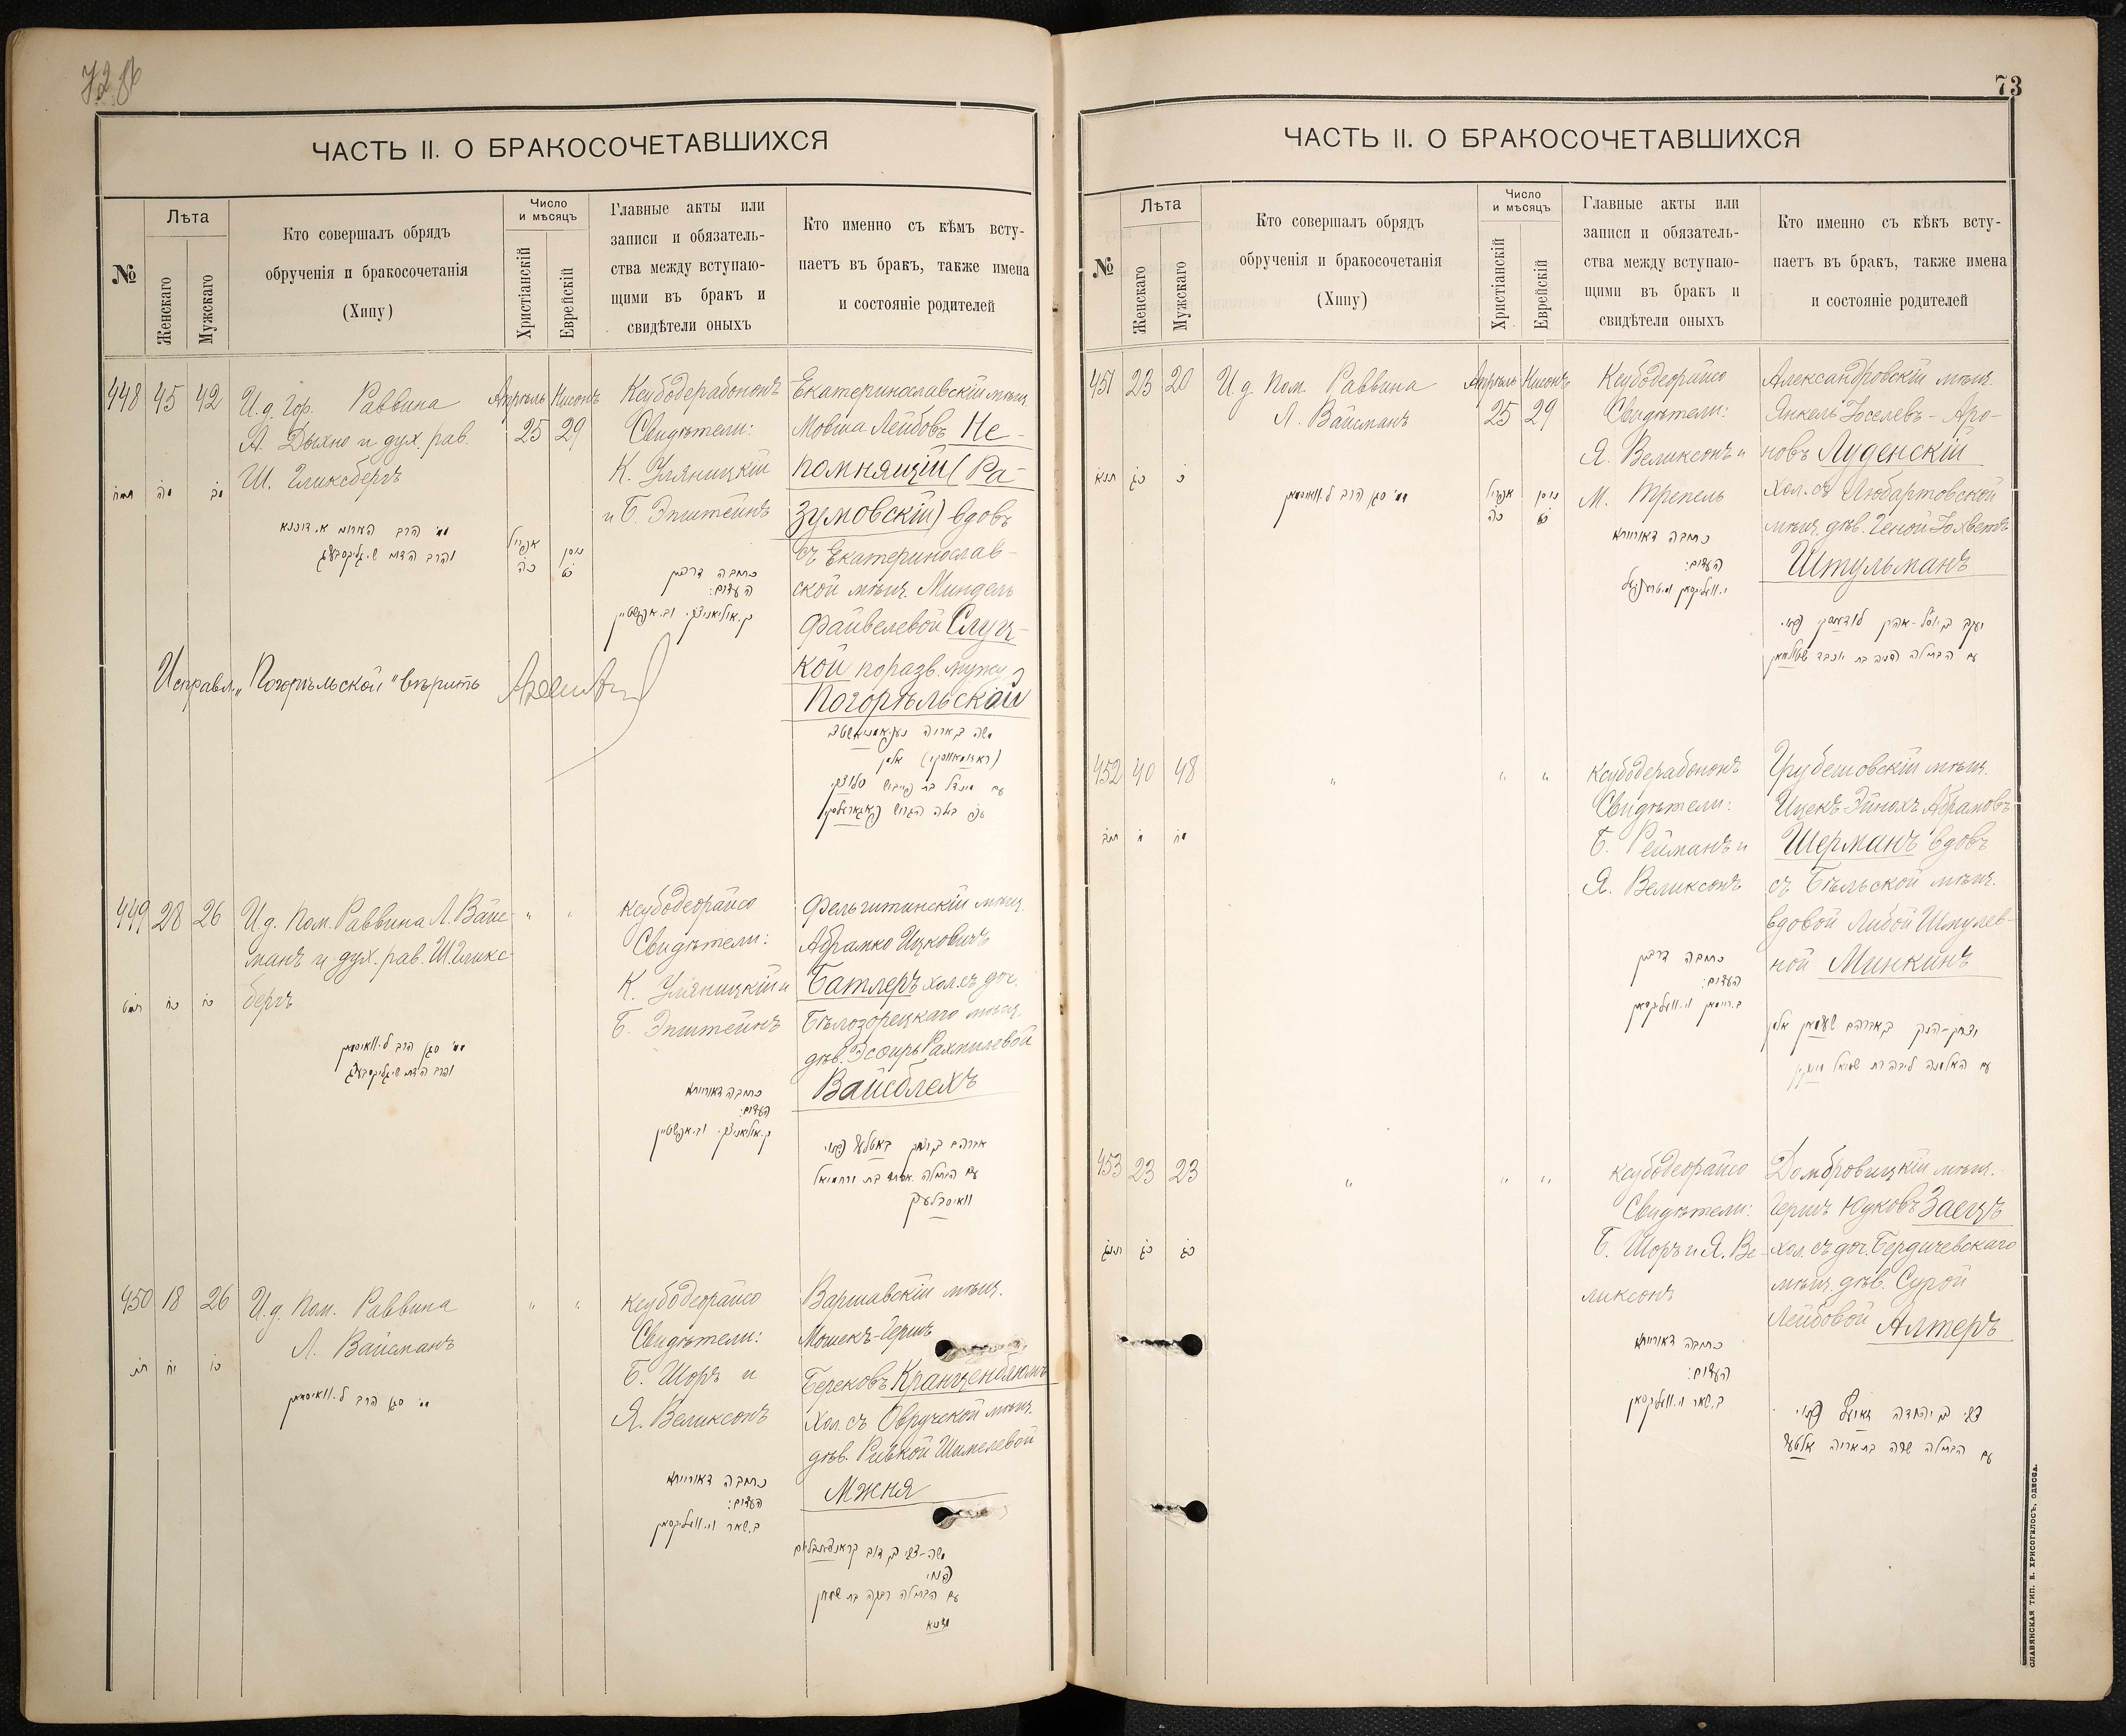 72 об
ЧАСТЬ II. О БРАКОСОЧЕТАВШИХСЯ
№
Лѣта
Женскаго
Мужскаго
Кто совершалъ обрядъ
обрученія и бракосочетанія
(Хипу)
Число
и мѣсяцъ
Христіанскій
Еврейскій
Главные акты или
записи и обязатель-
ства между вступаю-
щими въ бракъ и
свидѣтели оныхъ
Кто именно съ кѣмъ всту-
паетъ въ бракъ, также имена
и состояніе родителей
448 45 42
И.д. Гор. Раввина
А. Дыхно и дух. рав.
Ш. Гликсбергъ
Апрѣль Нисонъ
25 29
Ксубодерабононъ
Свидѣтели:
К. Уляницкій
и Б. Эпштейнъ
Екатеринославскій мѣщ.
Мовша Лейбовъ Не-
помнящій (Ра-
зумовскій) вдовъ
съ Екатеринослав-
ской мѣщ. Миндель
Файвелевой Слуц-
кой по разв. мужу
Погорѣльской
תמח מה מב
אפריל
כה
ניסן
כט
כתובה דרבנן
העדים:
Исправл. „Погорѣльской" вѣрить
449 28 26
И.д. Пом. Раввина Л. Вайс-
манъ и дух. рав. Ш. Гликс-
бергъ
" "
Ксубодеорайсо
Свидѣтели:
К. Уляницкій и
Б. Эпштейнъ
Фельштинскій мѣщ.
Абрамко Ицковичъ
Батлеръ хол. съ доч.
Бѣлозорецкаго мѣщ.
дѣв. Эсѳирь Рахмилевой
Вайсблехъ
תמט כח כו
כתובה דאורייתא
העדים:
אברהם בן יצחק באטלער פנוי
עם הבתולה אסתר בת ירחמיאל
ווייסבלעך
450 18 26
И.д. Пом. Раввина
Л. Вайсманъ
" "
Ксубодеорайсо
Свидѣтели:
Б. Шоръ и
Я. Великсонъ
Варшавскій мѣщ.
Мошекъ-Гершъ
Берековъ Кранценблюмъ
Хол. съ Овручской мѣщ.
дѣв. Ривкой Шимелевой
Мжня
תנ יח כו
כתובה דאורייתא
העדים:
משה-צבי בן דוב קראנצענבלום
פנוי
73
ЧАСТЬ II. О БРАКОСОЧЕТАВШИХСЯ
№
Лѣта
Женскаго
Мужскаго
Кто совершалъ обрядъ
обрученія и бракосочетанія
(Хипу)
Число
и мѣсяцъ
Христіанскій
Еврейскій
Главные акты или
записи и обязатель-
ства между вступаю-
щими въ бракъ и
свидѣтели оныхъ
Кто именно съ кѣкъ всту-
паетъ въ бракъ, также имена
и состояніе родителей
451 23 20
И.д. Пом. Раввина
Л. Вайсманъ
Апрѣль Нисонъ
25 29
Ксубодеорайсо
Свидѣтели:
Я. Великсонъ и
М. Трепель
Александровскій мѣщ.
Янкель Іоселевъ-Аро-
новъ Луденскій
Хол. съ Любартовской
мѣщ. дѣв. Геной Іохветъ
Штульманъ
תנא כג כ
אפריל
כה
ניסן
כט
כתובה דאורייתא
העדים:
452 40 48
" " "
Ксубодерабононъ
Свидѣтели:
Б. Рейманъ и
Я. Великсонъ
Грубешовскій мѣщ.
Ицекъ-Эйнохъ Абрамовъ
Шерманъ вдовъ
съ Бѣльской мѣщ.
вдовой Либой Шмулев-
ной Минкинъ
תנב מ מח
כתובה דרבנן
העדים:
453 23 23
" " "
Ксубодеорайсо
Свидѣтели:
Б. Шоръ и Я. Ве-
ликсонъ
Домбровицкій мѣщ.
Гершъ Юдковъ Заецъ
хол. съ доч. Бердичевскаго
мѣщ. дѣв. Сурой
Лейбовой Алтеръ
תנג כג כג
כתובה דאורייתא
העדים:
עם הבתולה שרה בת אריה אלטער
СЛАВЯНСКАЯ ТИП. Н. ХРИСОГЕЛОСЪ, ОДЕССА.